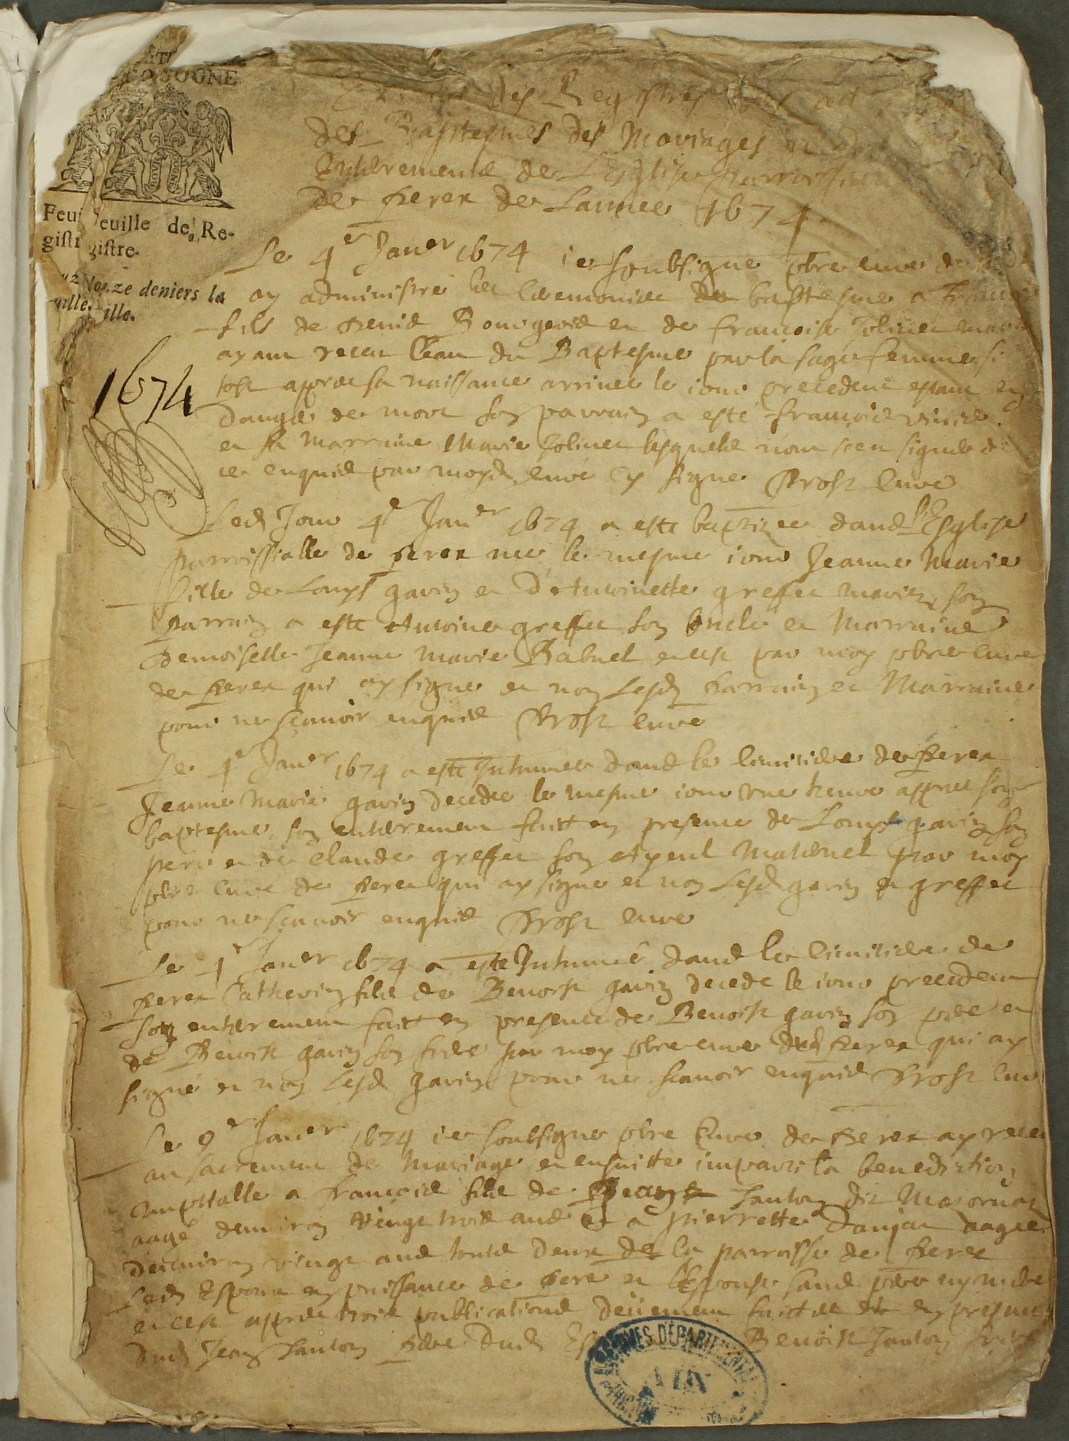 BOURGOGNE
Feuille de Re-
gistre.
onze deniers la
feuille.
1674
des Registres
des Baptesmes des Mariages et
Enterrements de L'Eglise Parroissi
de Perex de L'annee 1674
Le 4e Janer 1674 ie soubsigne pbre cure de
ay administre les ceremonies de baptesme a Francois
fils de Denis Bourgeois et de Francoise Jolivet maries
ayant receu l'eau du Baptesme par la sage femme si
tost apres sa naissance arrivee le iour precedent estant en
danger de mort son parrain a esté Francois
et sa Marraine Marie Jolivet lesquels nont sceu signer de
ce enquis par moyd cure cy signe Prost cure
Led Jour 4e Janer 1674 a esté baptizee dans l'Esglise
parroissialle de Perex nee le mesme iour Jeanne Marie
fille de Louys gavin et D'Antoinette greffet maries son
parrain a esté Antoine greffet son oncle et Marraine
Demoiselle Jeanne Marie Babuel et cest par moy pbre cure
de Perex qui ay signe et non lesd parrain et Marraine
pour ne scavoir enquis Prost cure
Le 4e Janer 1674 a esté Inhumee dans le cimitiere de Perex
Jeanne Marie gavin decedee le mesme iour une heure appres son
baptesme, son enterrement faict en presence de Louys gavin son
pere et de Claude greffet son ayeul Maternel par moy
pbre cure de Perex qui ay signe et non lesd gavin et greffet
pour ne scavoir enquis Prost cure
Le Janer 1674 a esté Inhumé dans le cimitiere de
Perex Catherin fils de Benoist gavin decede le iour precedent
son enterrement faict en presence de Benoist gavin son pere et
de Benoist gavin son frere par moy pbre cure dud Perex qui ay
signe et non lesd gavin pour ne scavoir enquis Prost cure
Le 9e Janer 1674 ie soubsigne pbre Cure de Perex ay receu
au sacrement de Mariage et ensuitte imparti la benediction
nuptialle a Francois fils de Jean Janton dit
aagé denviron vingt trois ans et a Pierrette Danjan aagee
denviron vingt ans touts deux de la parroisse de Perex
Led Espoux en puissance de pere et l'Espouse sans pere ny mere
et cest apres trois publications deüement faictes en presence
dud Jean Janton pere dud Benoist Janton
ARCHIVES DÉPARTEMENTALES
AIN